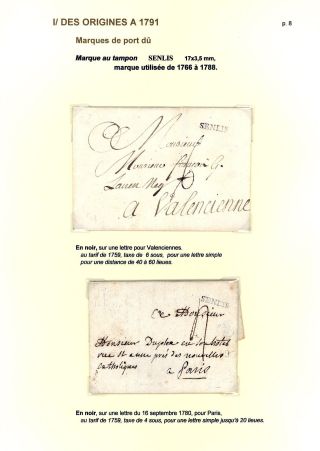 I/ DES ORIGINES A 1791
p. 8
Marques de port dû
Marque au tampon SENLIS 17x3,5 mm,
marque utilisée de 1766 à 1788.
SENLIS
Monsieur
Monsieur
a Valencienne
En noir, sur une lettre pour Valenciennes.
au tarif de 1759, taxe de 6 sous, pour une lettre simple
pour une distance de 40 à 60 lieues.
SENLIS
Monsieur
Monsieur
rue Ste anne près des nouvelles
Catholiques
a Paris
En noir, sur une lettre du 16 septembre 1780, pour Paris,
au tarif de 1759, taxe de 4 sous, pour une lettre simple jusqu'à 20 lieues.